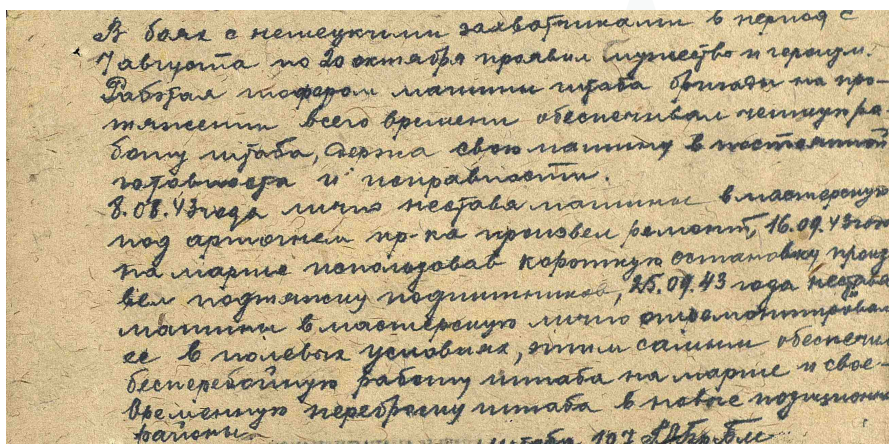 В боях с немецкими захватчиками в период с
7 августа по 20 октября проявил мужество и героизм.
Работая шофером машины штаба бригады на про-
тяжении всего времени обеспечивал четкую ра-
боту штаба, держа свою машину в постоянной
готовности и исправности.
8.08.43 года лично не ставя машины в мастерскую
под артогнем пр-ка произвел ремонт, 16.09.43 года
на марше использовав короткую остановку произ
вел подтяжку подшипников, 25.09.43 года не ставя
машины в мастерскую лично отремонтировал
ее в полевых условиях, этим самым обеспечил
бесперебойную работу штаба на марше и свое-
временную переброску штаба в новые позиционные
районы.
штаба 107